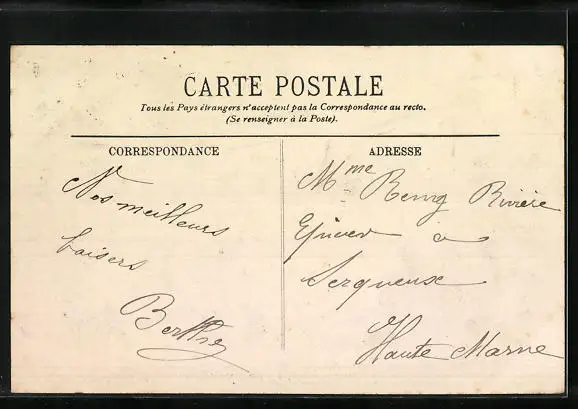 CARTE POSTALE
Tous les Pays étrangers n'acceptent pas la Correspondance au recto.
(Se renseigner à la Poste).
CORRESPONDANCE
Nos meilleurs
baisers
Berthe
ADRESSE
Mme Remy Rivière
Epicier à
Serqueux
Haute Marne